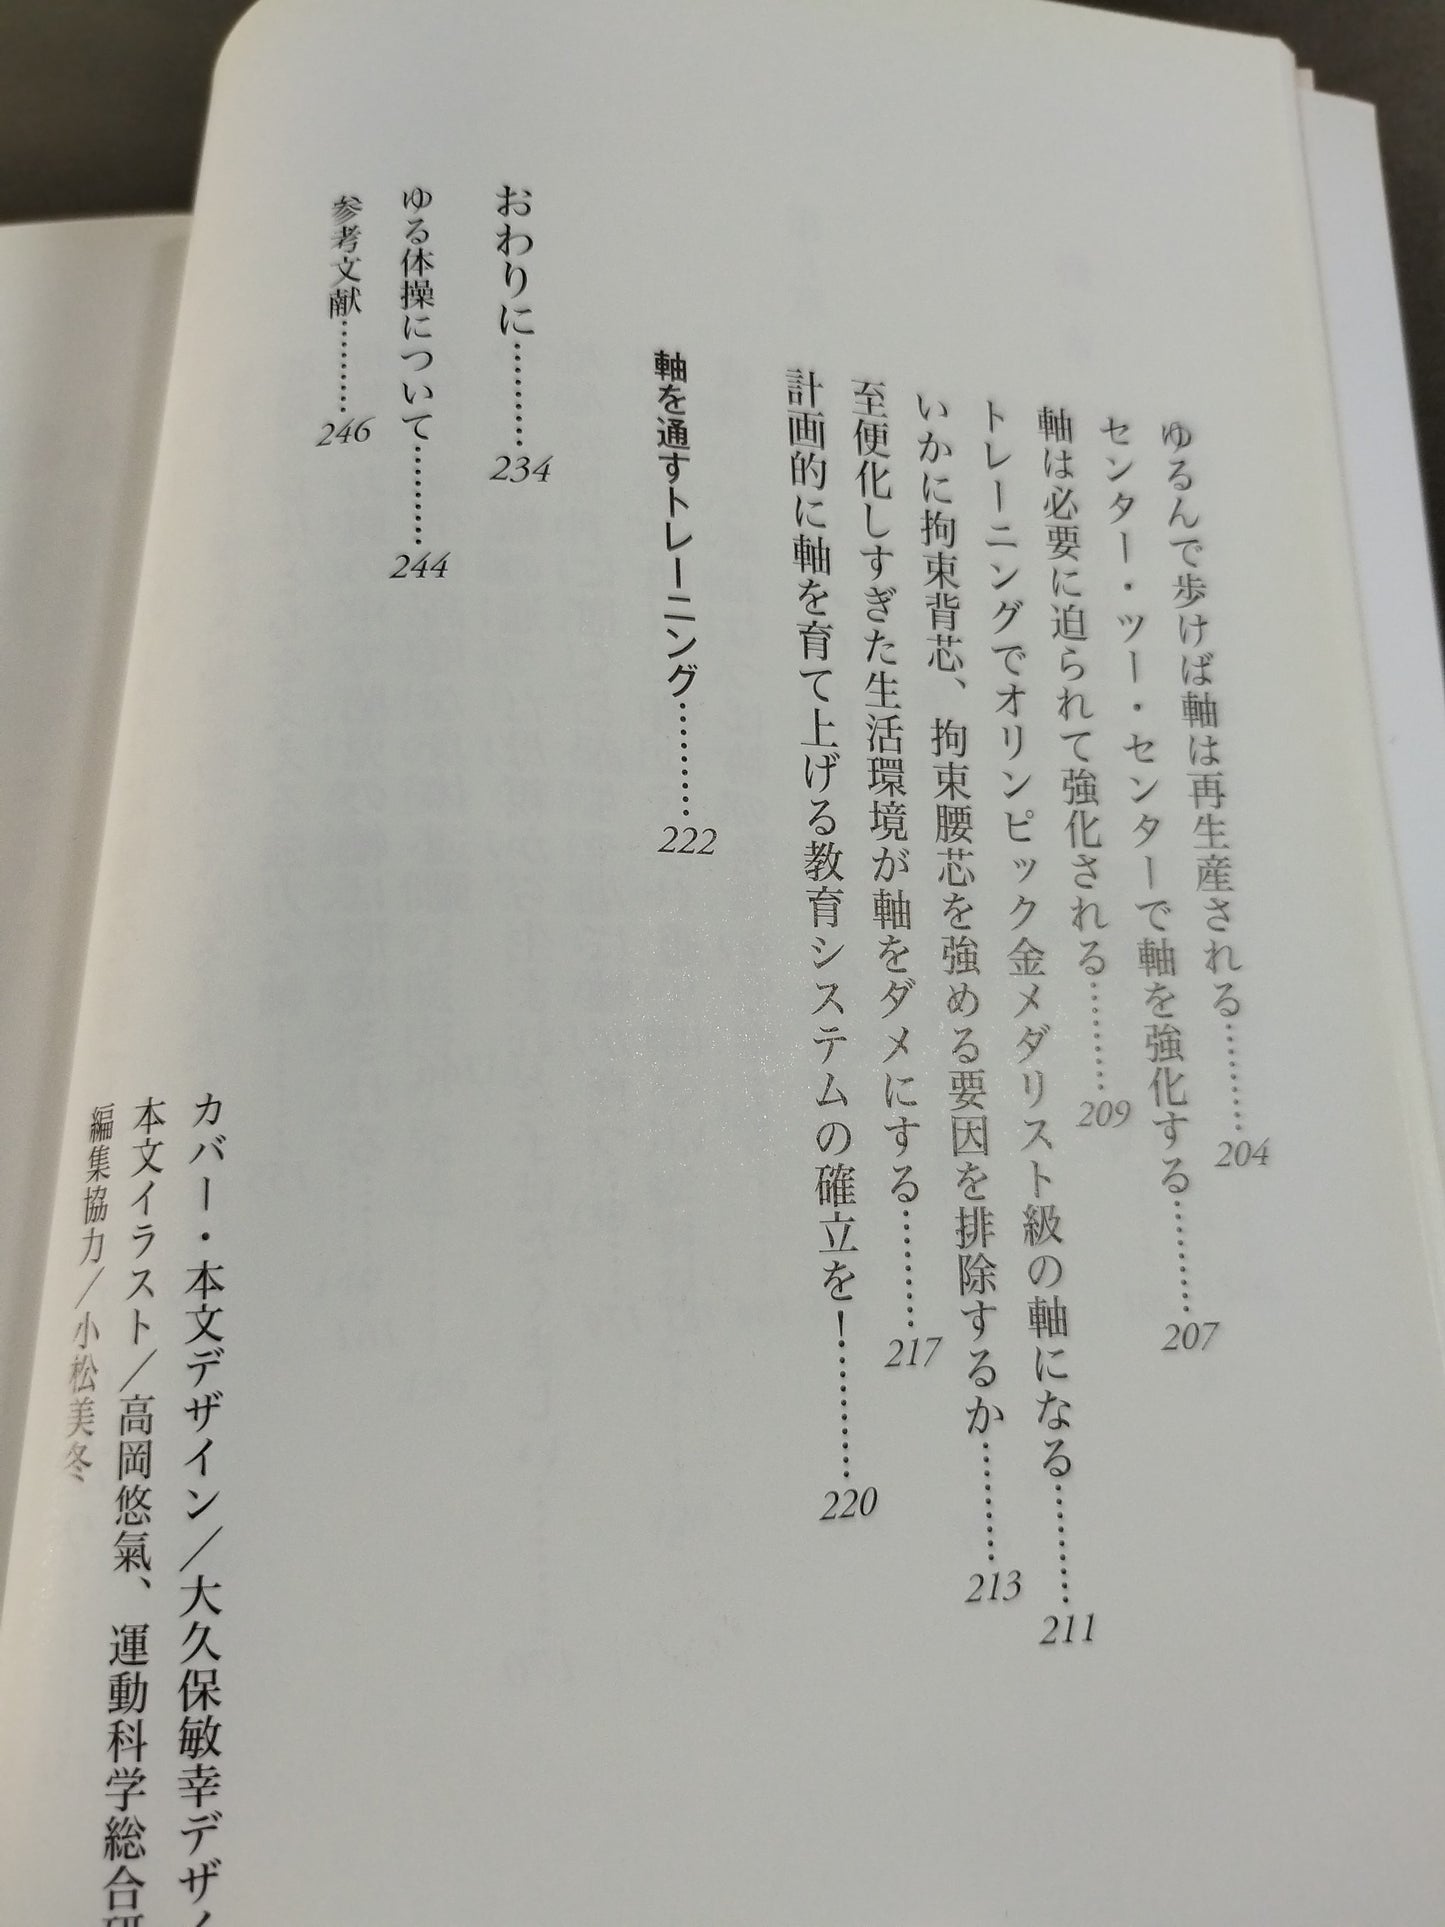 ゆるんで歩けば軸は再生産される………204
センター・ツー・センターで軸を強化する………207
軸は必要に迫られて強化される………209
トレーニングでオリンピック金メダリスト級の軸になる………211
いかに拘束背芯、拘束腰芯を強める要因を排除するか………213
至便化しすぎた生活環境が軸をダメにする………217
計画的に軸を育て上げる教育システムの確立を！………220
軸を通すトレーニング………222
おわりに………234
ゆる体操について………244
参考文献………246
カバー・本文デザイン／大久保敏幸デザイ
本文イラスト／高岡悠氣、運動科学総合研
編集協力／小松美冬